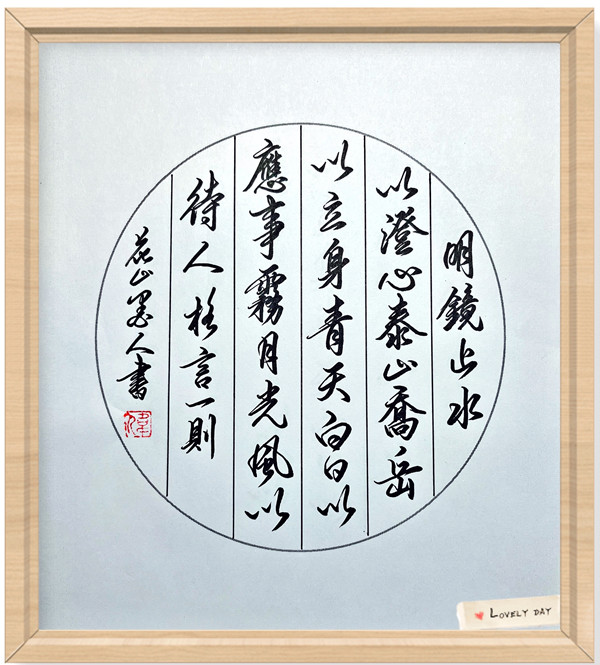 明鏡止水
以澄心泰山喬岳
以立身青天白日以
應事霧月光風以
待人格言一則
花山墨人書
LOVELY DAY